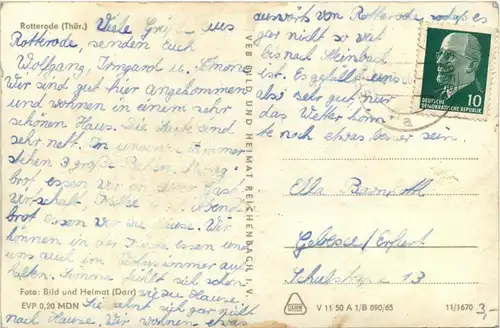 Rotterode (Thür.)
Viele Grüße aus
Rotterode, senden Euch
Wolfgang, Irmgard u. Simona
Wir sind gut hier angekommen
und wohnen in einem sehr
schönen Haus. Die Leute sind
sehr nett. In unserem Zimmer
stehen 3 große Betten.
brot essen wir
Wirtschaft, Abend
brot Essen wir zu Hause. Wir
können in der essen
uns auch im
Simona fühlt sich schon
wie zu Hause.
Sie sehnt sich gar nicht
nach Hause. Wir wohnen etwas
Foto: Bild und Heimat (Darr)
EVP 0,20 MDN
VEB BILD UND HEIMAT REICHENBACH I. V.
auswärts von Rotterode, sodaß es
gar nicht so weit
bis nach Steinbach
ist. Es gefällt uns
als sehr gut, nur
das Wetter könn
te noch etwas besser sein.
10
DEUTSCHE
DEMOKRATISCHE REPUBLIK
a
Ella
Gebesee / Erfurt
13
V 11 50 A 1/B 690/65
11/1670